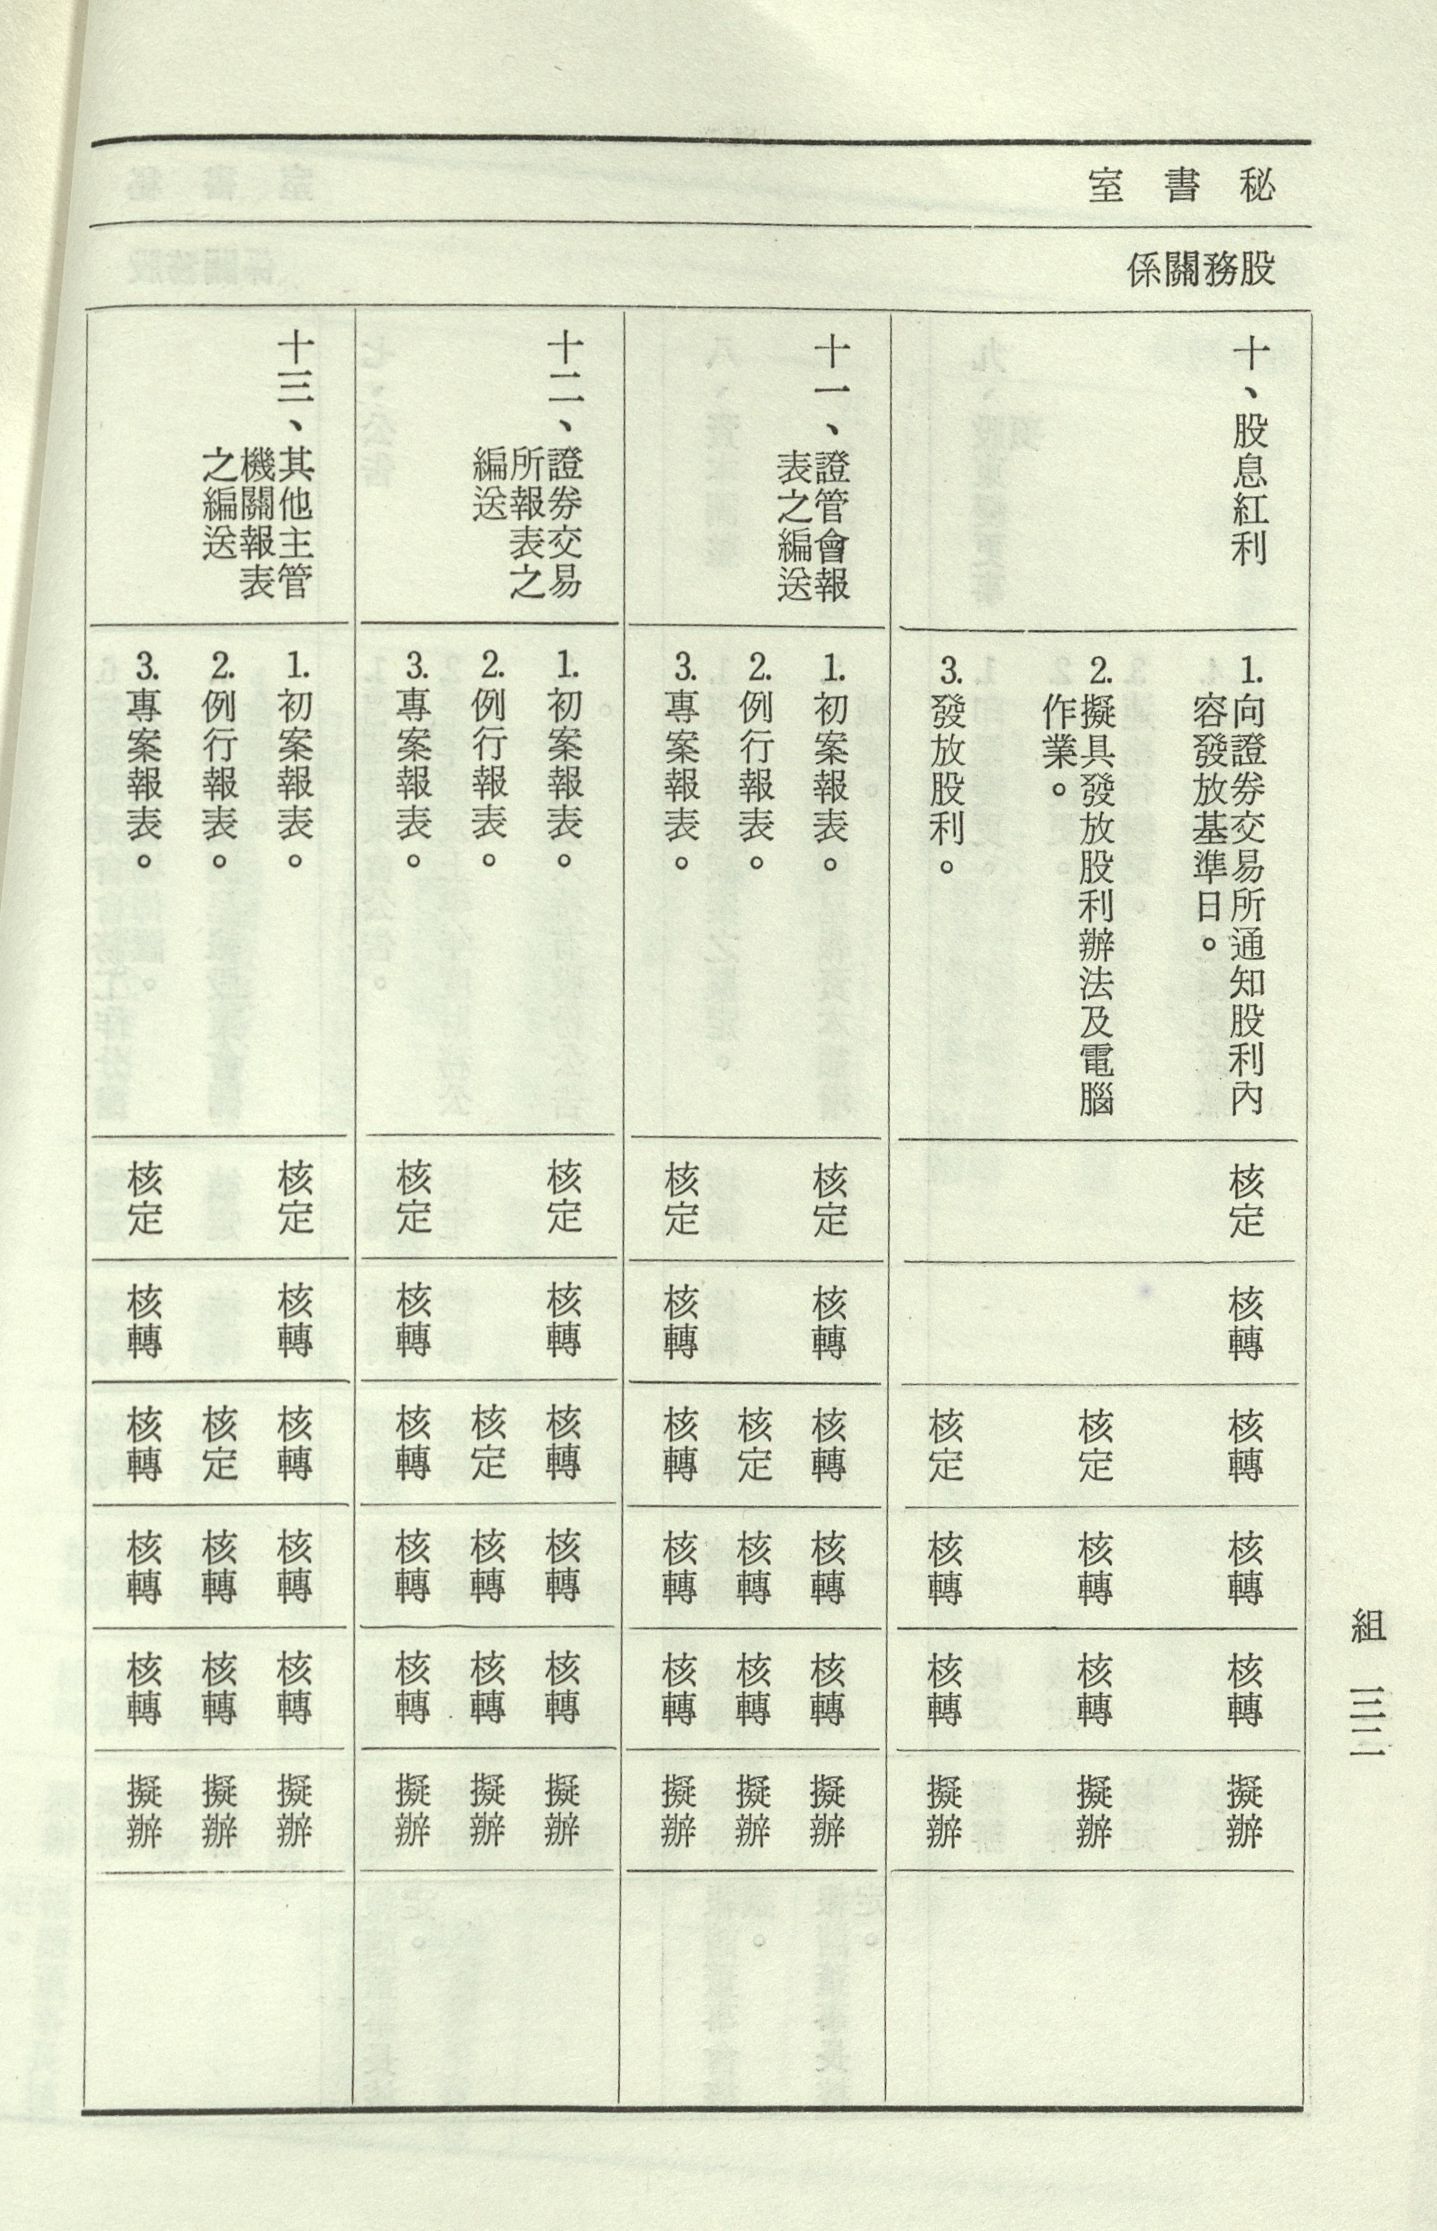 秘書室
股務關係
十、股息紅利
1.向證券交易所通知股利內
容發放基準日。
核定
核轉
核轉
核轉
核轉
擬辦
2.擬具發放股利辦法及電腦
作業。
核定
核轉
核轉
擬辦
3.發放股利。
核定
核轉
核轉
擬辦
十一、證管會報
表之編送
1.初案報表。
核定
核轉
核轉
核轉
核轉
擬辦
2.例行報表。
核定
核轉
核轉
擬辦
3.專案報表。
核定
核轉
核轉
核轉
核轉
擬辦
十二、證券交易
所報表之
編送
1.初案報表。
核定
核轉
核轉
核轉
核轉
擬辦
2.例行報表。
核定
核轉
核轉
擬辦
3.專案報表。
核定
核轉
核轉
核轉
核轉
擬辦
十三、其他主管
機關報表
之編送
1.初案報表。
核定
核轉
核轉
核轉
核轉
擬辦
2.例行報表。
核定
核轉
核轉
擬辦
3.專案報表。
核定
核轉
核轉
核轉
核轉
擬辦
組 三二